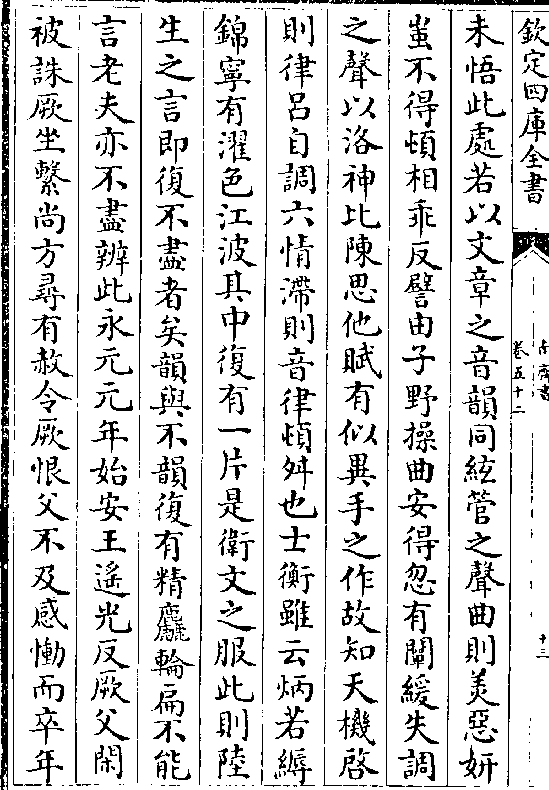 欽定四庫全書
南齊書
卷五十二
十三
未悟此處若以文章之音韻同絃管之聲曲則美惡妍
蚩不得頓相乖反譬由子野操曲安得忽有闡緩失調
之聲以洛神比陳思他賦有似異手之作故知天機啓
則律呂自調六情滯則音律頓舛也士衡雖云炳若縟
錦寧有濯色江波其中復有一片是衛文之服此則陸
生之言即復不盡者矣韻與不韻復有精麤輪扁不能
言老夫亦不盡辨此永元元年始安王遙光反厥父閑
被誅厥坐繫尚方尋有赦令厥恨父不及感慟而卒年